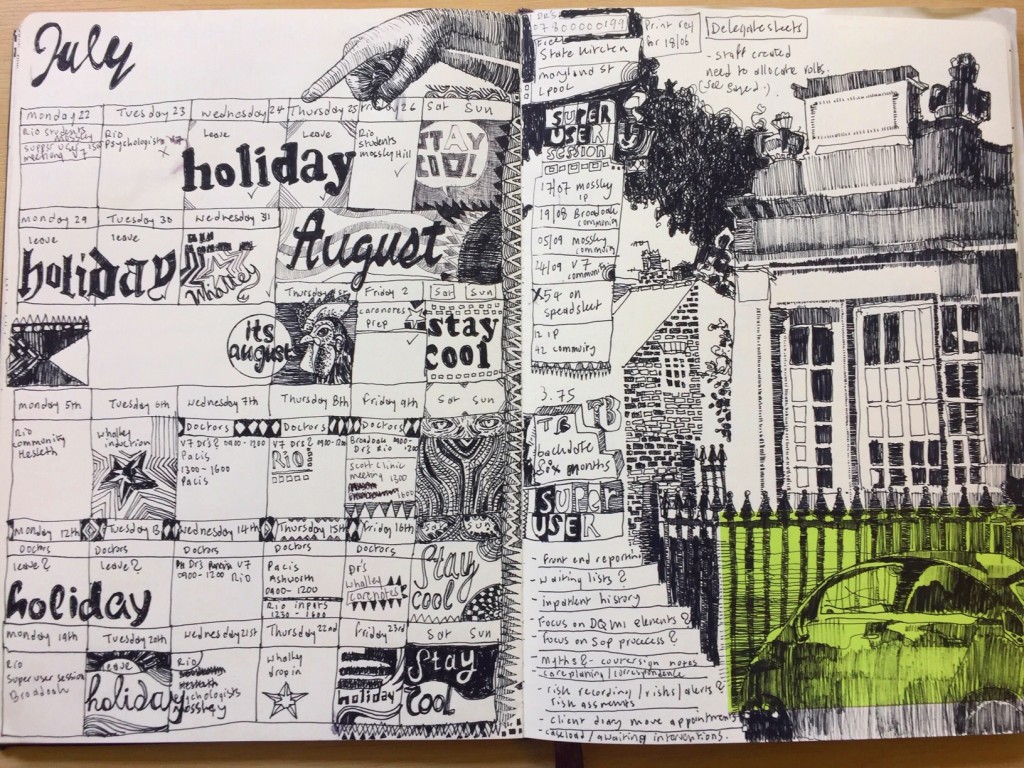 July
Monday 22 Tuesday 23 Wednesday 24 Thursday 25 Friday 26 Sat Sun
Rio students
super user
meeting V7
Rio
Psychologists
x
Leave
Leave
holiday
Rio
students
mossley Hill
STAY
COOL
Monday 29 Tuesday 30 Wednesday 31
leave
leave
holiday
Whalley
August
Thursday 1st Friday 2 Sat Sun
its
august
carenotes
prep
stay
cool
Monday 5th Tuesday 6th Wednesday 7th Thursday 8th Friday 9th Sat Sun
Rio
community
Hesketh
whalley
induction
Doctors
V7 Drs? 0900-1200
Pacis
1300-1600
Pacis
Doctors
V7 Drs? 0900-1200
Rio
Doctors
Broadoak 0900-1200
Dr's Rio
Scott clinic
meeting 1300
1600
Monday 12th Tuesday 13 Wednesday 14th Thursday 15th Friday 16th Sat Sun
Doctors
leave?
Doctors
Leave?
holiday
Doctors
Drs V7
0900-1200 Rio
Doctors
Pacis
Ashworth
0900-1200
Rio inputs
1230-1600
Doctors
Dr's
whalley
carenotes
Stay
cool
Monday 19th Tuesday 20th Wednesday 21st Thursday 22nd Friday 23rd Sat Sun
Rio
Super user session
Broadoak
leave
holiday
Rio
Hesketh
Psychologists
Mossley
whalley
drop in
holiday
Stay
Cool
07800000199
State Kitchen
maryland st
Lpool
Print reg
for 18/06
Delegate sheets
- staff created
need to allocate rolls.
SUPER
USER
SESSION
17/07 mossley
IP
19/08 Broadoak
community
05/09 mossley
community
24/09 V7
community
X54 on
speadsleet
12 IP
42 commuity
3.75
TB
backdate
Six months
SUPER
USER
- Front end reporting
- Waiting lists?
- inpatient history
- Focus on DQMI elements?
- focus on Sop proccess?
- Myths? - countersign notes
- care planing/correspondence
- risk recording/visits/alerts?
risk assments
- Client diary move appointments
- caseload/awaiting interventions.